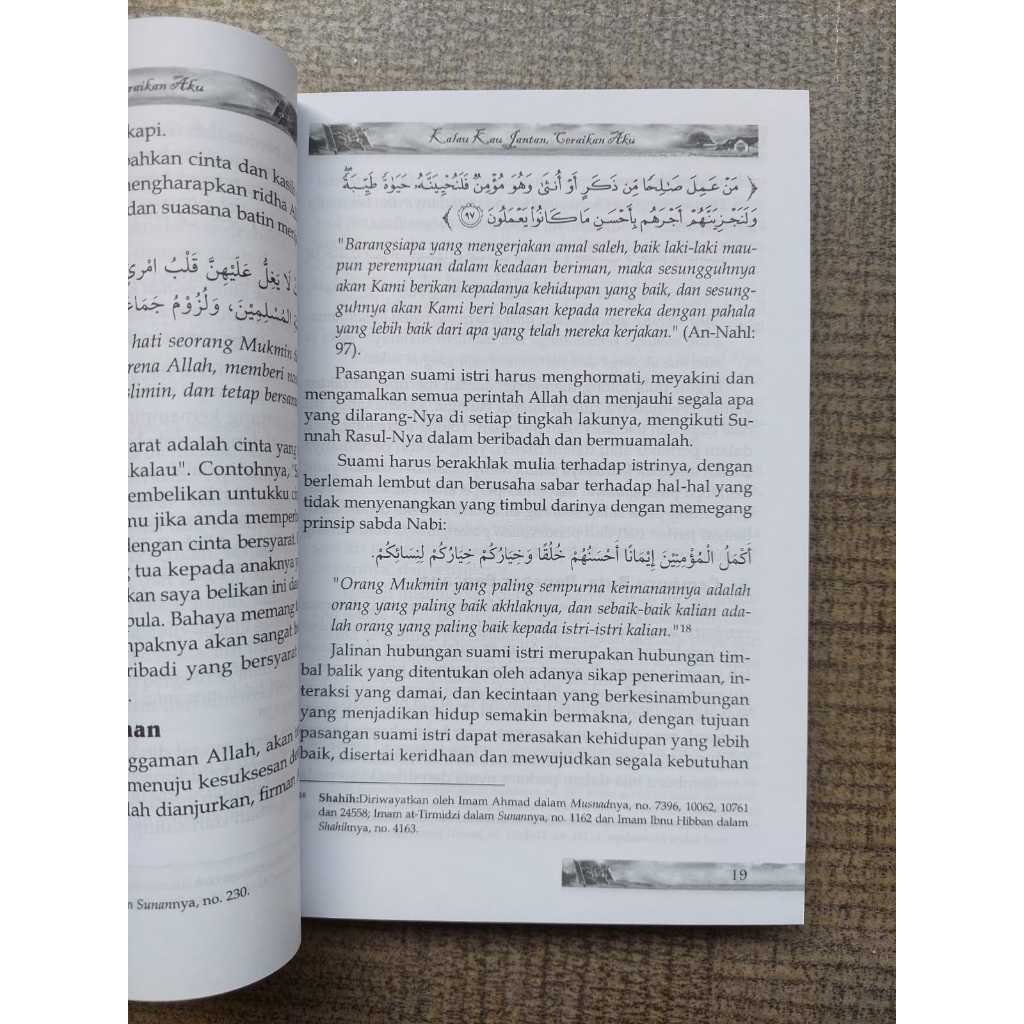 raikan Aku
kapi.
bahkan cinta dan kasih
mengharapkan ridha A
dan suasana batin men
لَا يَغِلُّ عَلَيْهِنَّ قَلْبُ امْرِئٍ
الْمُسْلِمِيْنَ، وَلُزُوْمُ جَمَاعَ
hati seorang Mukmin s
rena Allah, memberi na
slimin, dan tetap bersam
arat adalah cinta yang
kalau". Contohnya, "S
embelikan untukku c
mu jika anda memper
dengan cinta bersyarat
g tua kepada anaknya y
kan saya belikan ini da
pula. Bahaya memang
mpaknya akan sangat b
ribadi yang bersyarat
nan
ggaman Allah, akan
menuju kesuksesan de
lah dianjurkan, firman
m Sunannya, no. 230.
Kalau Kau Jantan, Ceraikan Aku
﴿ مَنْ عَمِلَ صَـٰلِحًا مِّن ذَكَرٍ أَوْ أُنثَىٰ وَهُوَ مُؤْمِنٌ فَلَنُحْيِيَنَّهُۥ حَيَوٰةً طَيِّبَةً ۖ
وَلَنَجْزِيَنَّهُمْ أَجْرَهُم بِأَحْسَنِ مَا كَانُوا۟ يَعْمَلُونَ ۝٩٧ ﴾
"Barangsiapa yang mengerjakan amal saleh, baik laki-laki mau-
pun perempuan dalam keadaan beriman, maka sesungguhnya
akan Kami berikan kepadanya kehidupan yang baik, dan sesung-
guhnya akan Kami beri balasan kepada mereka dengan pahala
yang lebih baik dari apa yang telah mereka kerjakan." (An-Nahl:
97).
Pasangan suami istri harus menghormati, meyakini dan
mengamalkan semua perintah Allah dan menjauhi segala apa
yang dilarang-Nya di setiap tingkah lakunya, mengikuti Su-
nnah Rasul-Nya dalam beribadah dan bermuamalah.
Suami harus berakhlak mulia terhadap istrinya, dengan
berlemah lembut dan berusaha sabar terhadap hal-hal yang
tidak menyenangkan yang timbul darinya dengan memegang
prinsip sabda Nabi:
أَكْمَلُ الْمُؤْمِنِيْنَ إِيْمَانًا أَحْسَنُهُمْ خُلُقًا وَخِيَارُكُمْ خِيَارُكُمْ لِنِسَائِكُمْ.
"Orang Mukmin yang paling sempurna keimanannya adalah
orang yang paling baik akhlaknya, dan sebaik-baik kalian ada-
lah orang yang paling baik kepada istri-istri kalian."18
Jalinan hubungan suami istri merupakan hubungan tim-
bal balik yang ditentukan oleh adanya sikap penerimaan, in-
teraksi yang damai, dan kecintaan yang berkesinambungan
yang menjadikan hidup semakin bermakna, dengan tujuan
pasangan suami istri dapat merasakan kehidupan yang lebih
baik, disertai keridhaan dan mewujudkan segala kebutuhan
18 Shahih:Diriwayatkan oleh Imam Ahmad dalam Musnadnya, no. 7396, 10062, 10761
dan 24558; Imam at-Tirmidzi dalam Sunannya, no. 1162 dan Imam Ibnu Hibban dalam
Shahihnya, no. 4163.
19